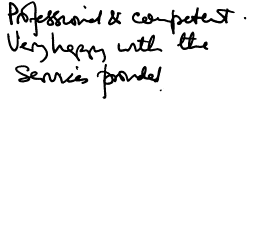 Professional & competent.
Very happy with the
Services provided.